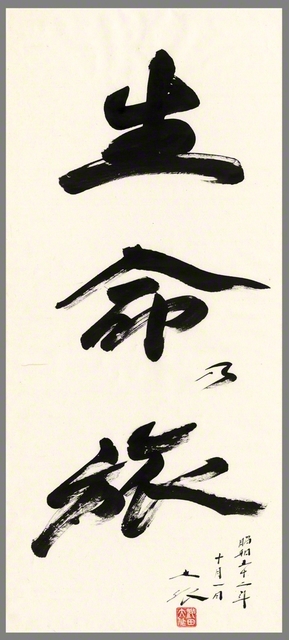 生命乃旅
昭和五十二年
十月一日